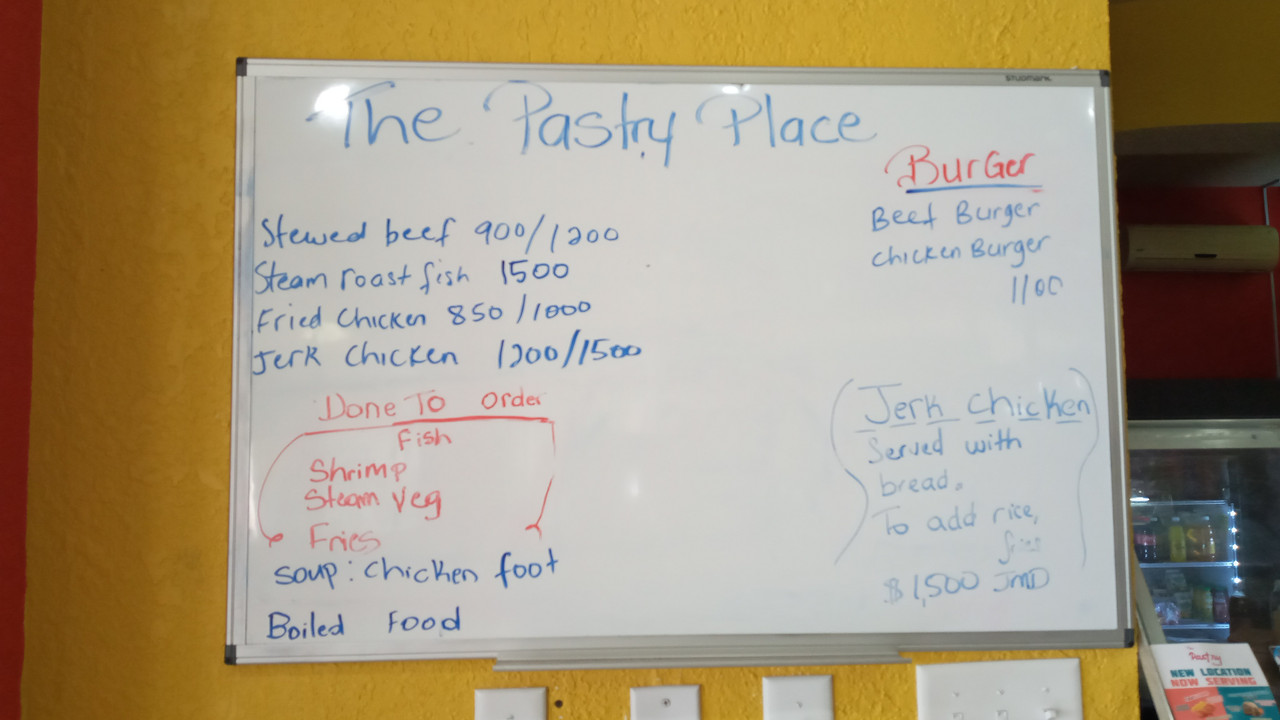 STUDMARK
The Pastry Place
Stewed beef 900/1200
Steam roast fish 1500
Fried Chicken 850/1000
Jerk Chicken 1200/1500
Done To Order
Fish
Shrimp
Steam veg
Fries
Soup: Chicken foot
Boiled Food
BurGer
Beef Burger
Chicken Burger
1100
Jerk Chicken
Served with
bread.
To add rice,
fries
$1,500 JMD
Pastry
NEW LOCATION
NOW SERVING